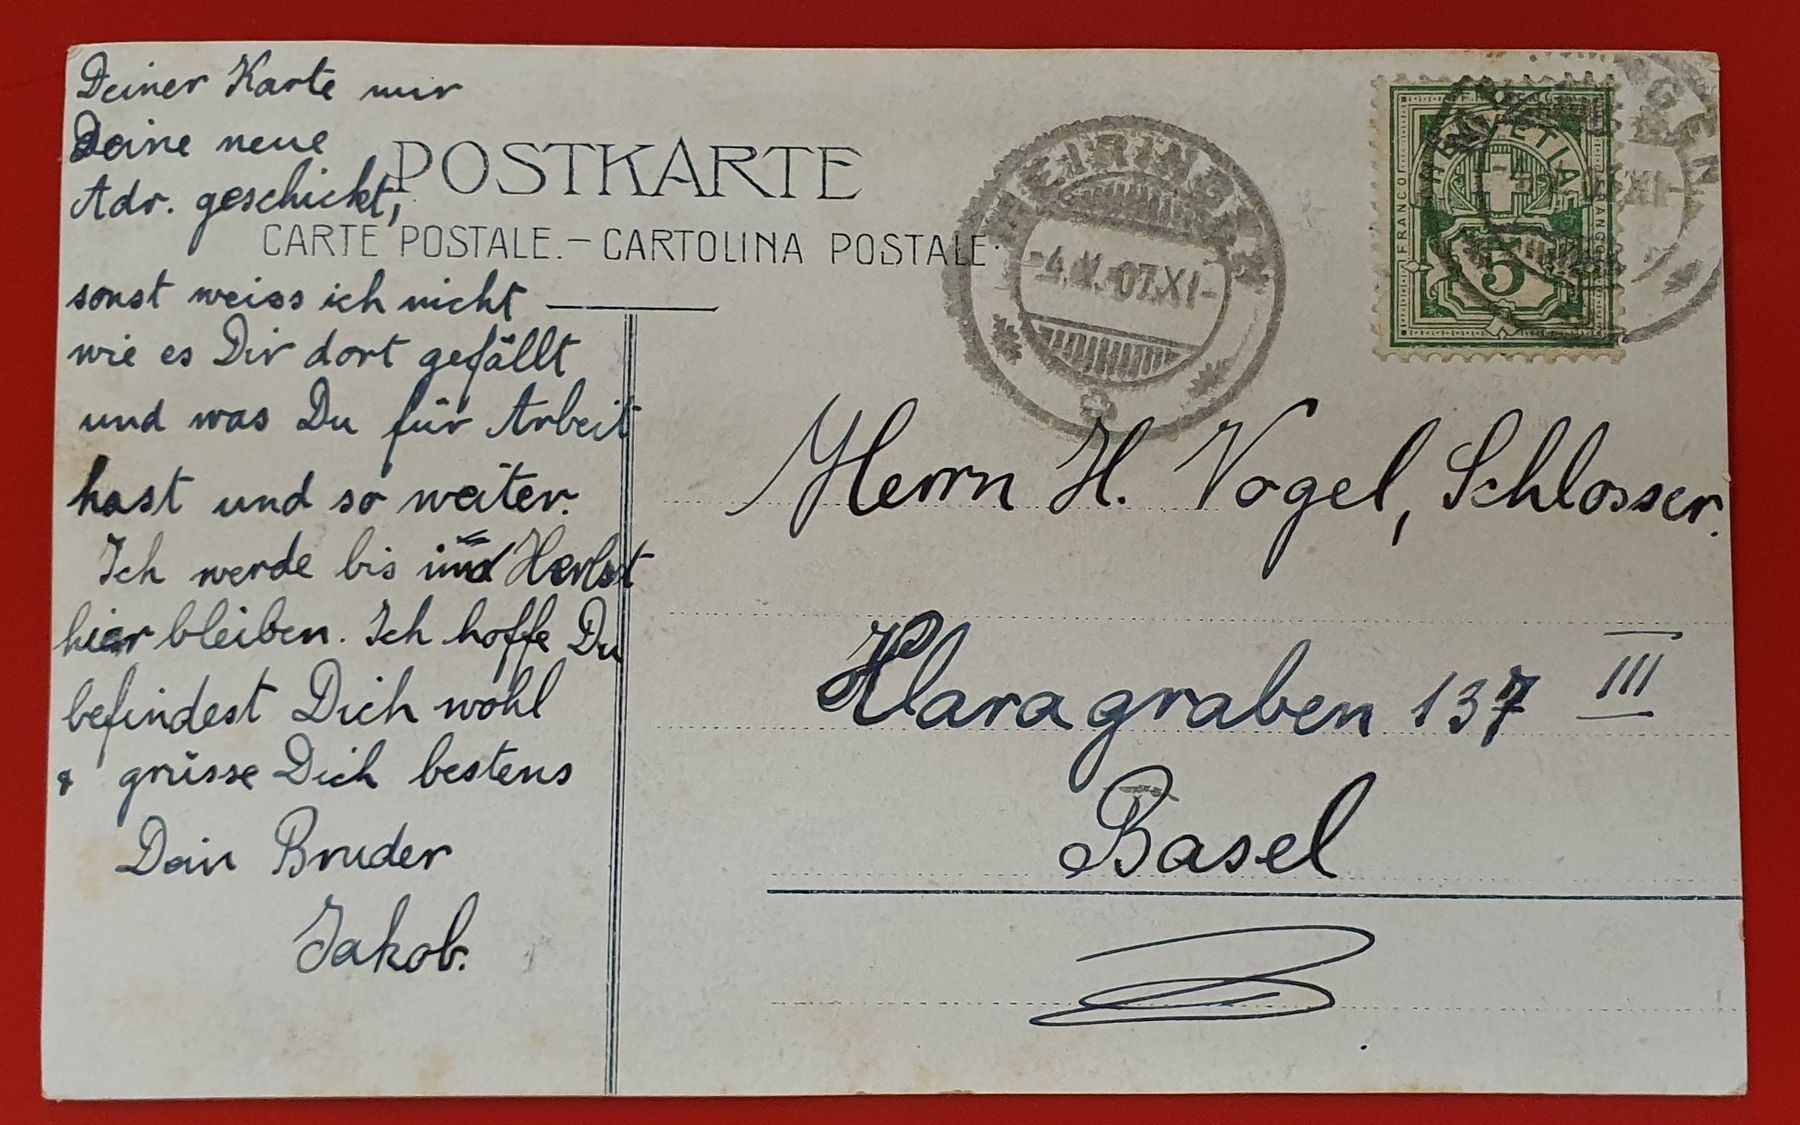 Deiner Karte nur
Deine neue
Adr. geschickt,
sonst weiss ich nicht
wie es Dir dort gefällt
und was Du für Arbeit
hast und so weiter.
Ich werde bis Herbst
hier bleiben. Ich hoffe Du
befindest Dich wohl
& grüsse Dich bestens
Dein Bruder
Jakob.
POSTKARTE
CARTE POSTALE. – CARTOLINA POSTALE.
MEIRINGEN
07.XI-
HELVETIA
FRANCO
5
Herrn H. Vogel, Schlosser.
Klaragraben 137 III
Basel